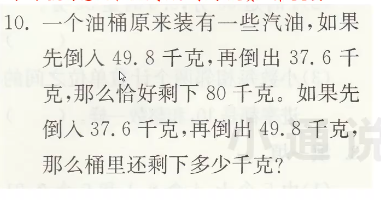 10. 一个油桶原来装有一些汽油,如果
先倒入 49.8 千克,再倒出 37.6 千
克,那么恰好剩下 80 千克。如果先
倒入 37.6 千克,再倒出 49.8 千克,
那么桶里还剩下多少千克?
小通说